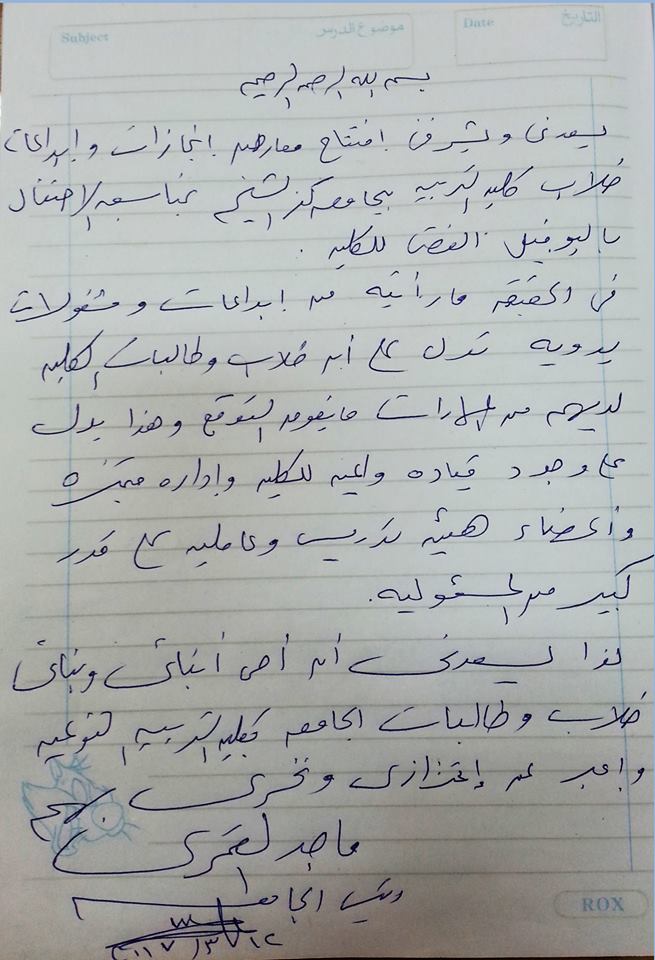 Subject
موضوع الدرس
Date
التاريخ
بسم الله الرحمن الرحيم
يسعدنى ويشرفنى افتتاح معارض إنجازات وإبداعات
طلاب كليه التربيه بجامعه كفر الشيخ بمناسبه الاحتفال
باليوبيل الفضى للكليه .
فى الحقيقه ما رأيته من إبداعات ومشغولات
يدويه تدل على أن طلاب وطالبات الكليه
لديهم من المهارات ما يفوق التوقع وهذا يدل
على وجود قياده واعيه للكليه وإداره متميزه
وأعضاء هيئه تدريس وعاملين على قدر
كبير من المسئوليه .
لذا يسعدنى أن أحى أبنائى وبناتى
طلاب وطالبات الجامعه بكليه التربيه النوعيه
وأعبر عن إعتزازى وفخرى بهم
ماجد القمرى
رئيس الجامعه
٢٠١٧/٣/١٢
ROX